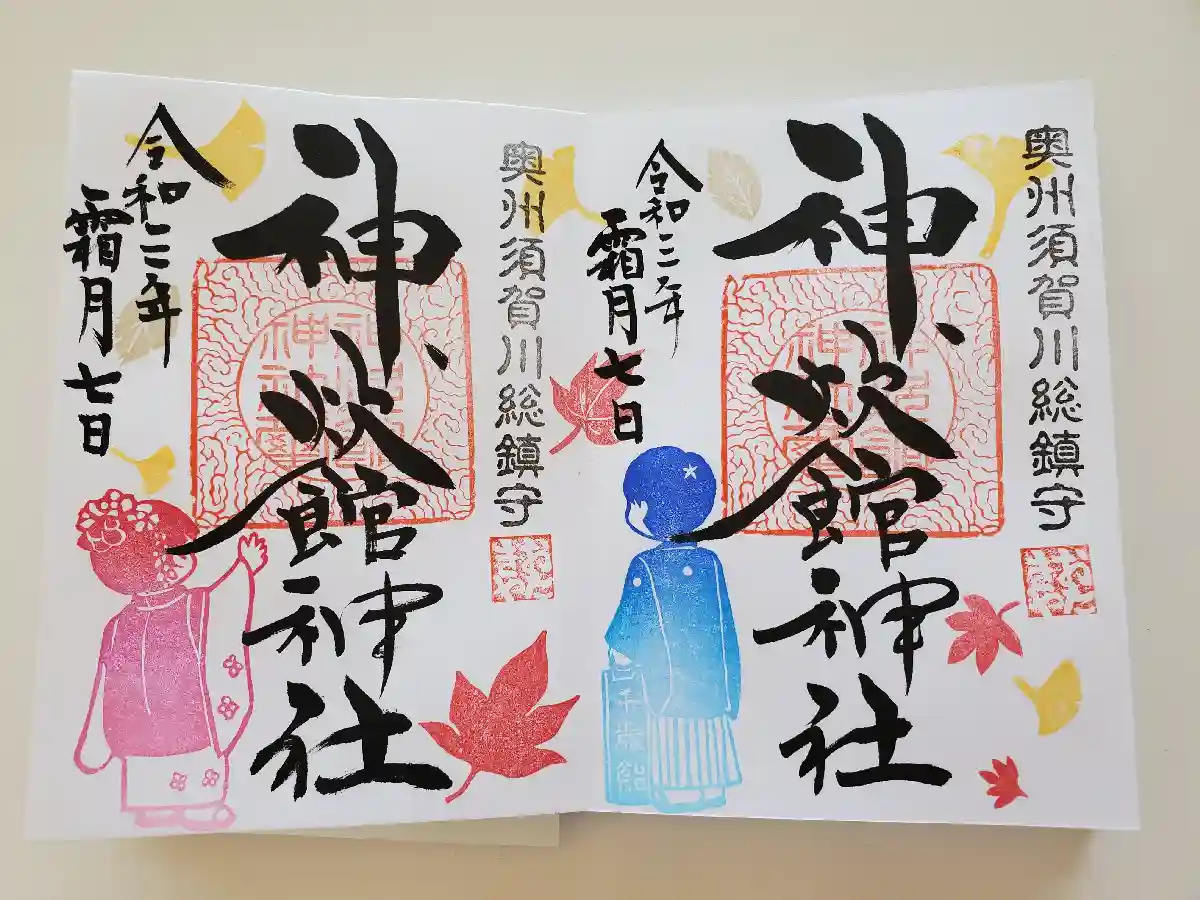 奥州須賀川総鎮守
神炊館神社
令和二年
霜月七日
千歳飴
奥州須賀川総鎮守
神炊館神社
令和二年
霜月七日